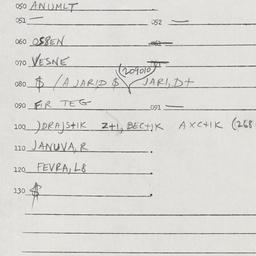 050 ANUMLT
051 — 052 —
060 OSBEN
070 VESNE
(209010)
080 $ / AJARID $ JARI, D+
090 FIR TEG 091 —
100 )DRAJS+IK Z+1, BEC+)K AXC+IK (268
110 JANUVA, R
120 FEVRA, L8
130 $